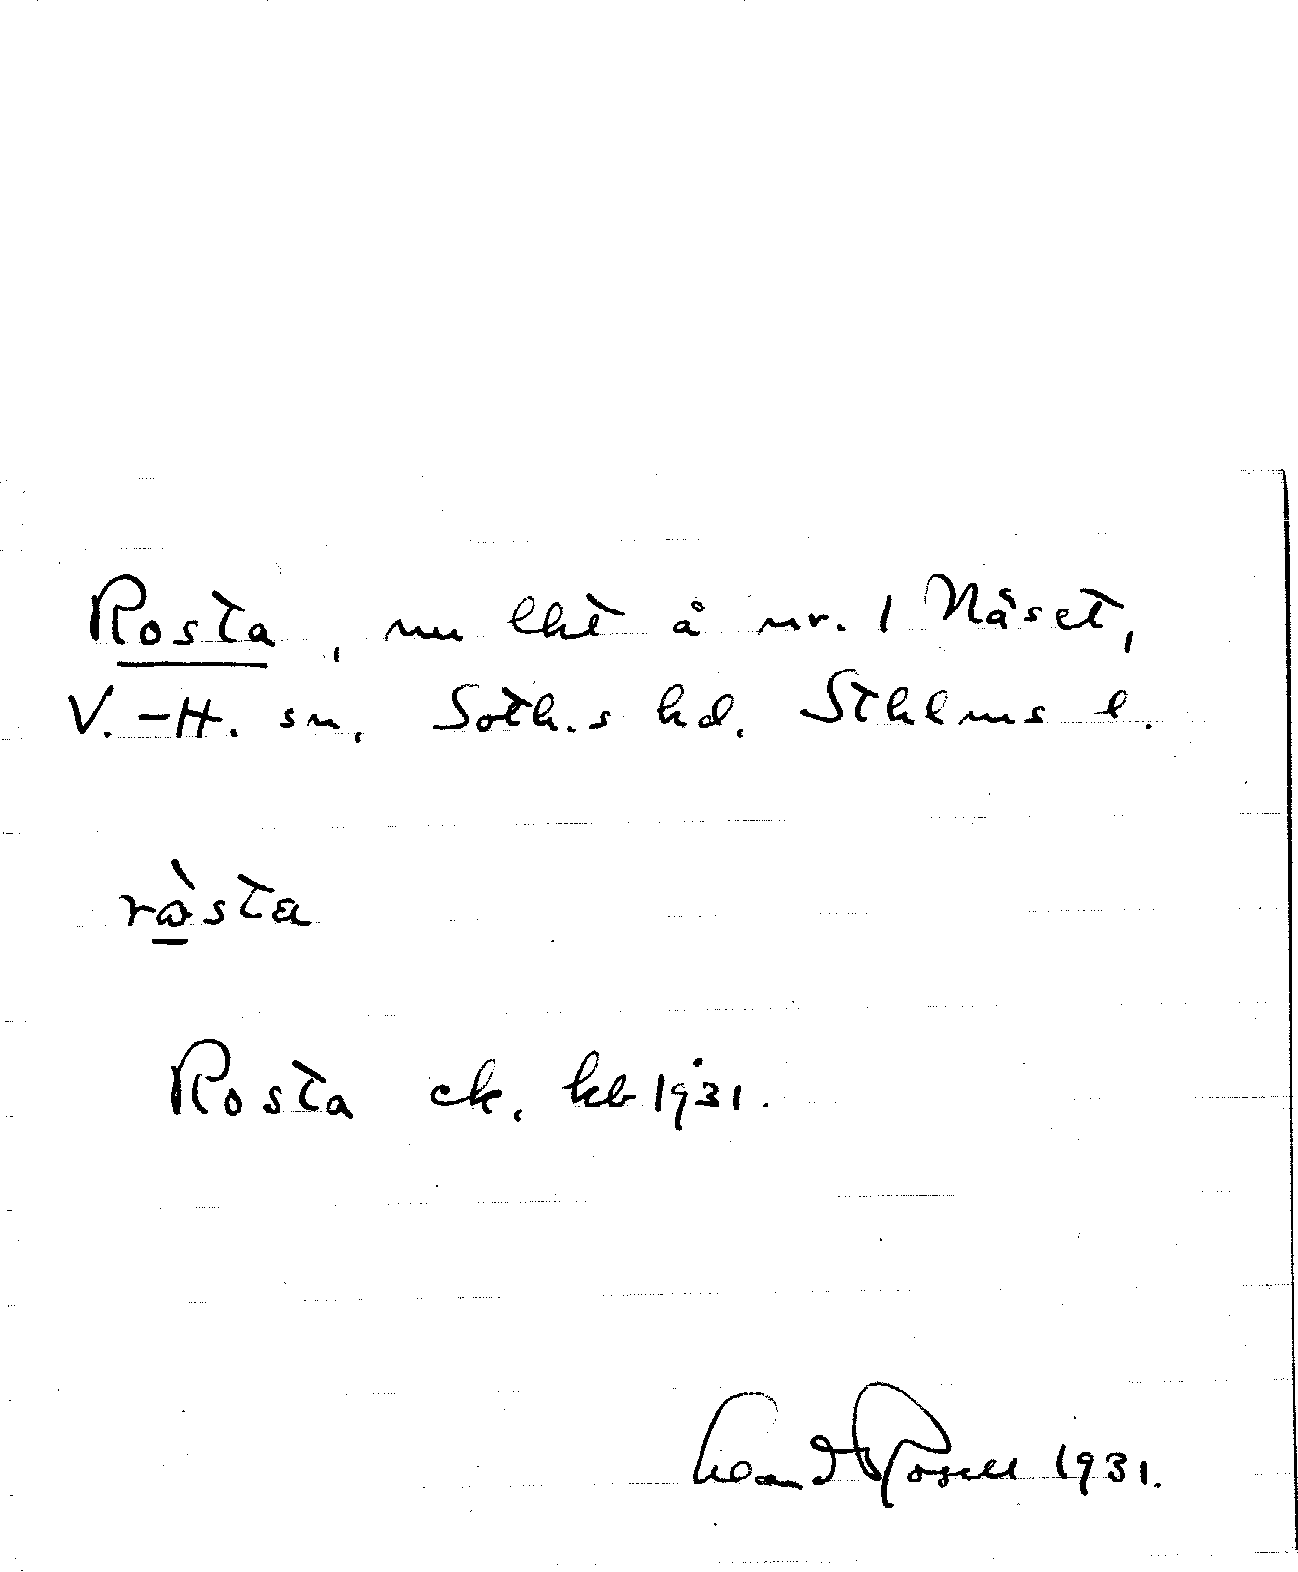 Rosta, nu lht å nr. 1 Näset,
V.-H. sn, Soth.s hd. Sthlms l.
ròsta
Rosta ek. kb 1931.
1931.